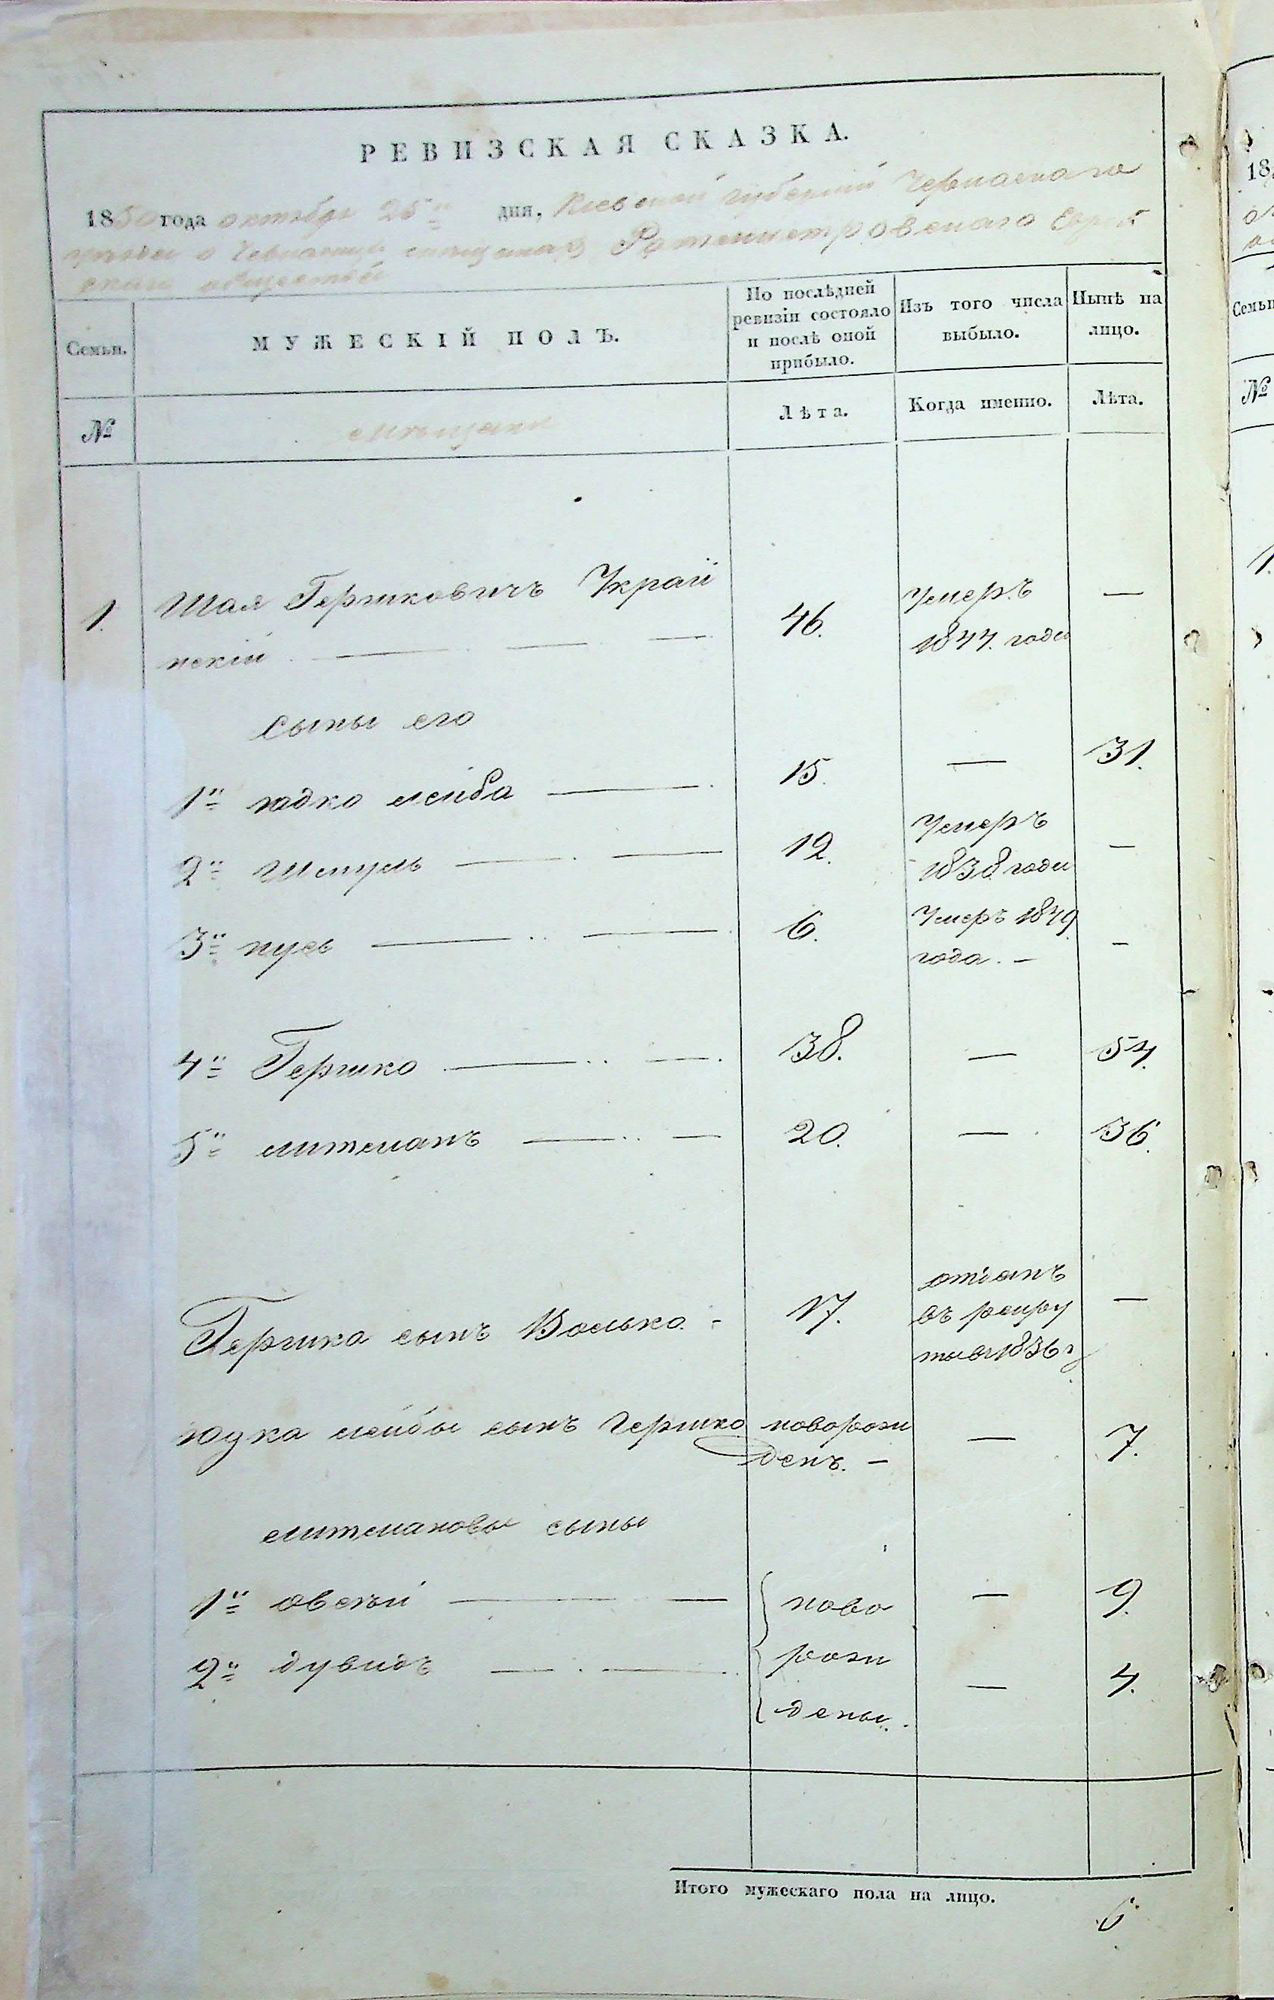 РЕВИЗСКАЯ СКАЗКА.
1850 года октября 25 дня, Киевской губернiи Черкаскаго
Ротмистровскаго Еврей
скаго общества
Семьи.
МУЖЕСКIЙ ПОЛЪ.
По послѣдней
ревизiи состояло
и послѣ оной
прибыло.
Изъ того числа
выбыло.
Нынѣ на
лицо.
№
мѣщане
Лѣта.
Когда именно.
Лѣта.
1. Шая Гершковичъ Украй 46. Умеръ —
нскiй 1844. года
Сыны его
1й Юдко лейба 15. — 31.
2й Шмуль 12. Умеръ —
1838 года
3й нусь 6. Умеръ 1849 —
года. —
4й Гершко 38. — 54.
5й литманъ 20. — 36.
Гершка сынъ Волько 17. отданъ —
въ рекру
ты в 1836 г
Юдка лейбы сынъ Гершко новорож — 7.
денъ. —
литмановы сыны
1й овсѣй ново — 9.
2й дувидъ рож — 4.
дены.
Итого мужескаго пола на лицо.
6
18
Семьи
№
1.